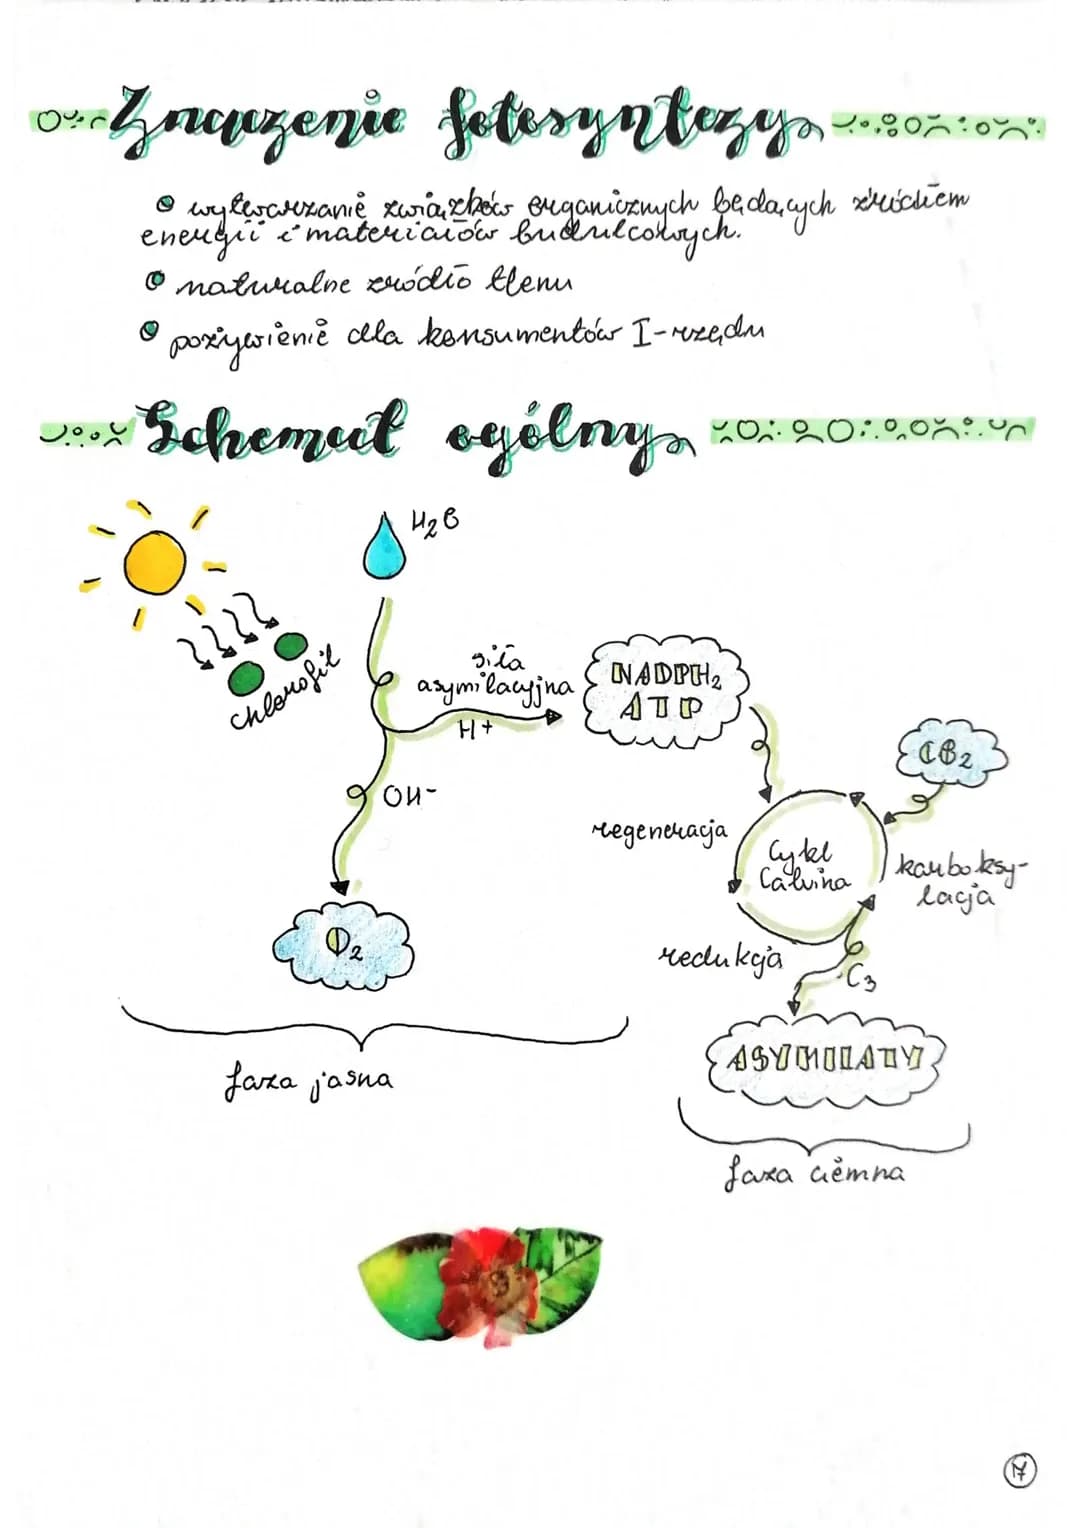 Znaczenie fotosyntezy
wytwarzanie związków organicznych będących źródłem
energii i materiałów budulcowych.
naturalne źródło tlenu
pożywienie dla konsumentów I-rzędu
Schemat ogólny
H₂O
chlorofil
siła
asymilacyjna
H+
NADPH₂
ATP
OH-
CO₂
regeneracja
Cykl
Calvina
karboksy-
lacja
O₂
redukcja
C₃
ASYMILATY
faza jasna
faza ciemna